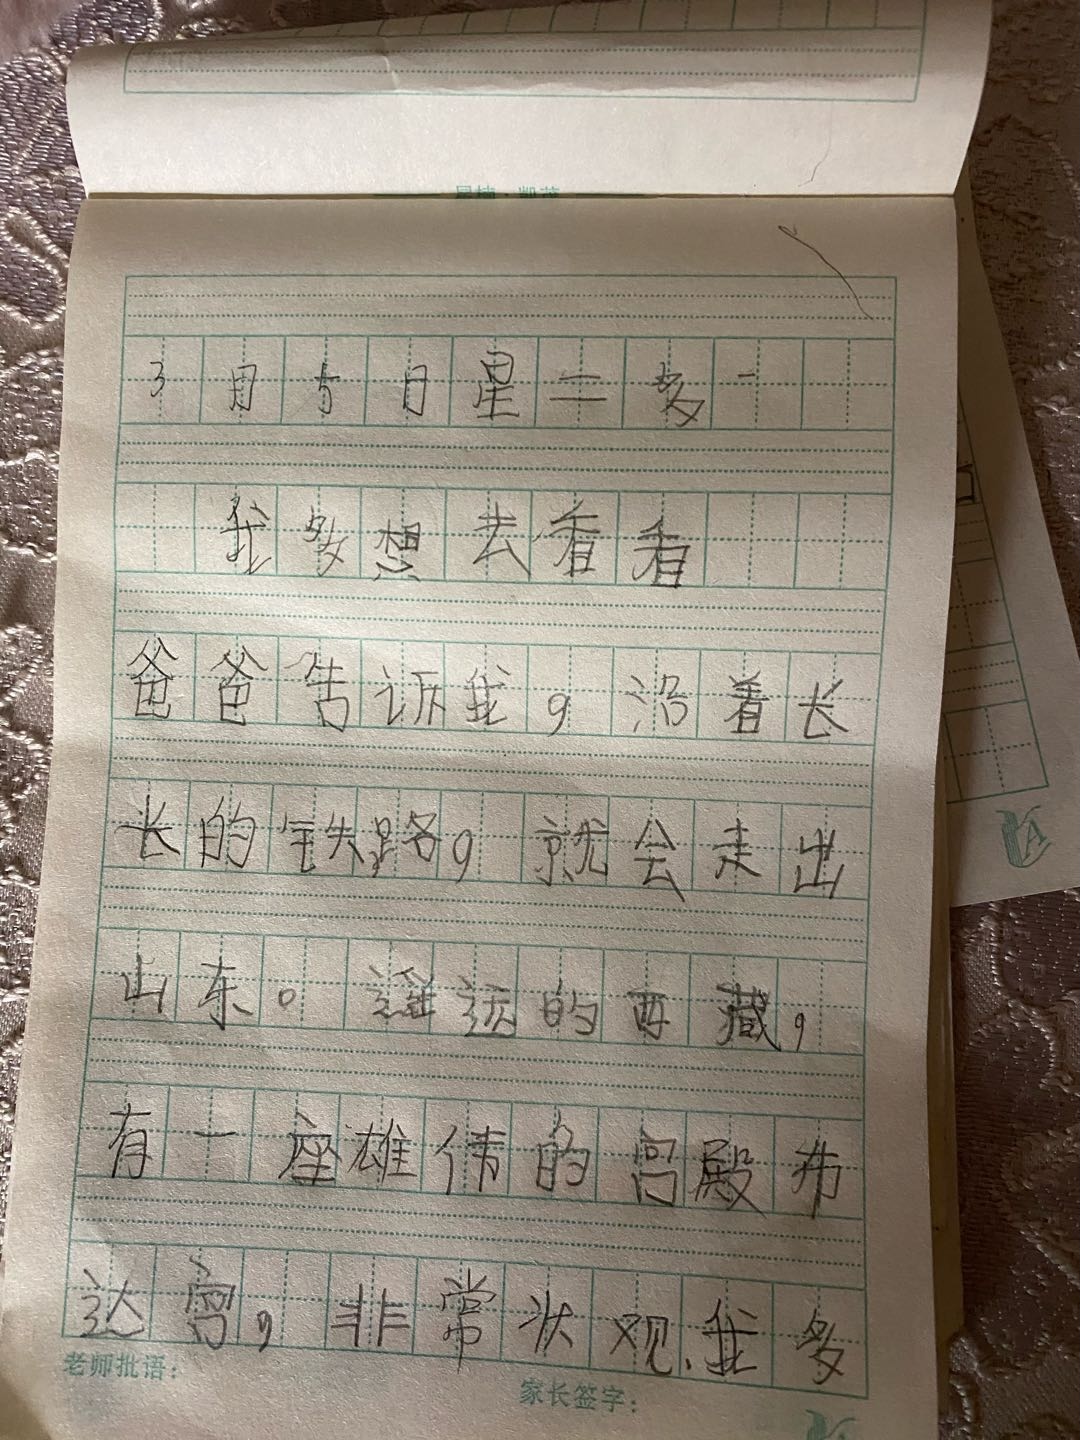 3月5日星二多
我多想去看看
爸爸告诉我，沿着长
长的铁路，就会走出
山东。遥远的西藏，
有一座雄伟的宫殿布
达宫，非常状观、我多
老师批语：
家长签字：